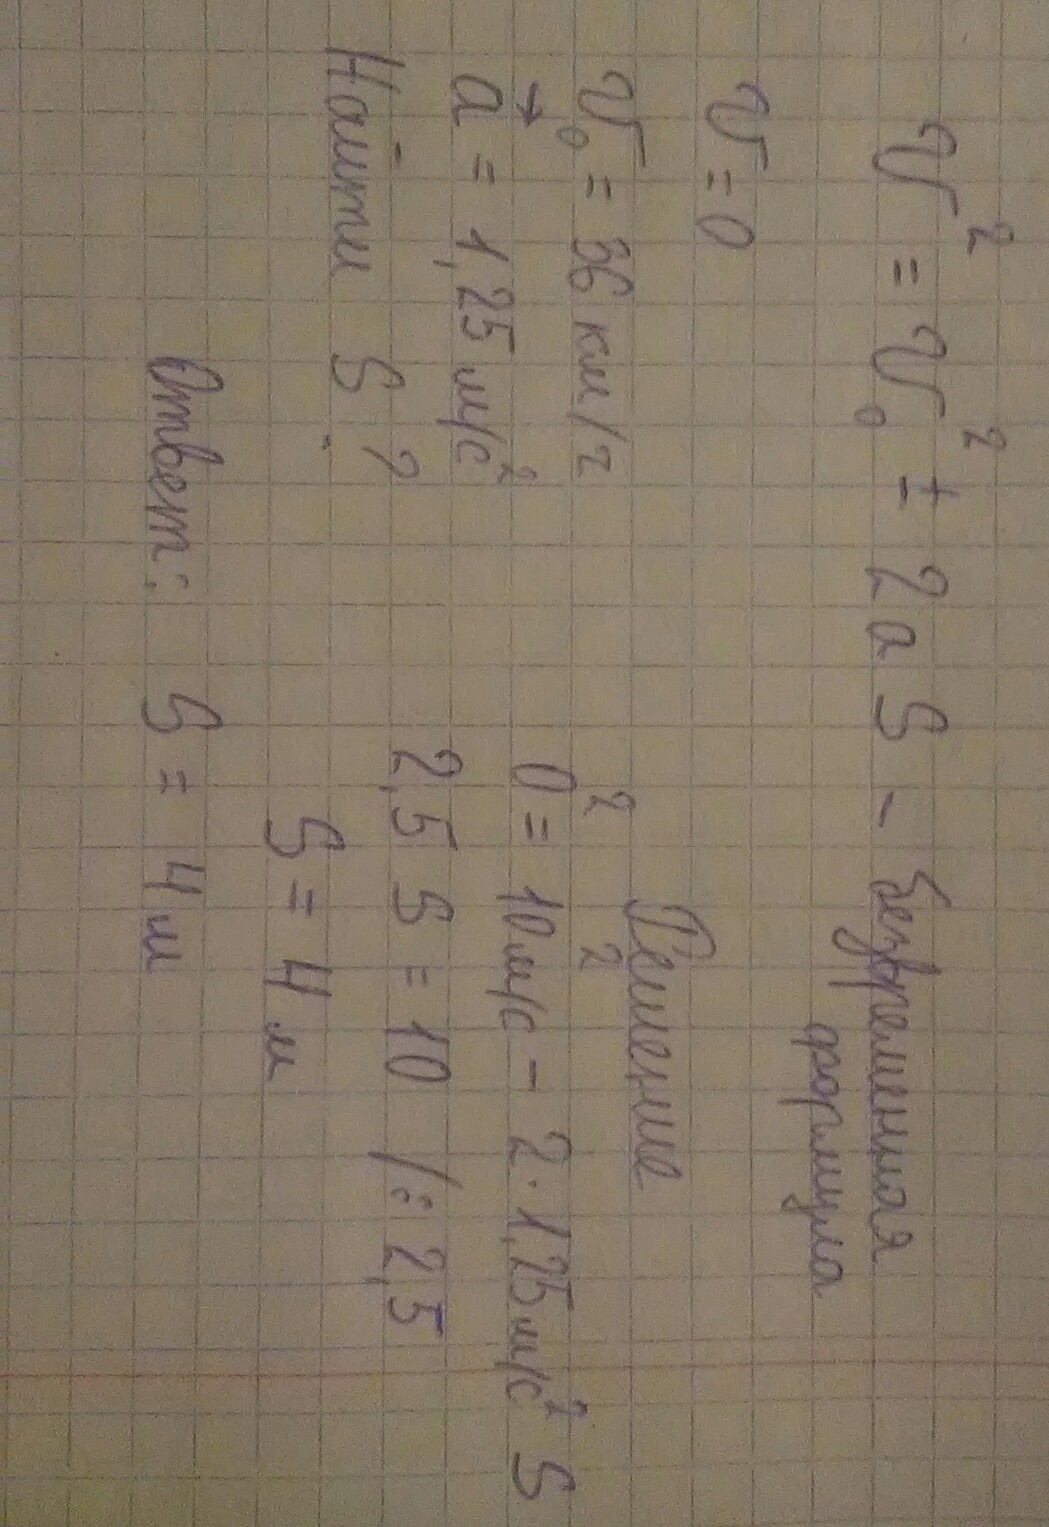 V² = V₀² ± 2aS - безвременная
формула
V = 0
V₀ = 36 км/ч
a⃗ = 1,25 м/с²
Найти S ?
Решение
0² = 10м/с² - 2·1,25м/с² S
2,5 S = 10 /: 2,5
S = 4 м
Ответ: S = 4м